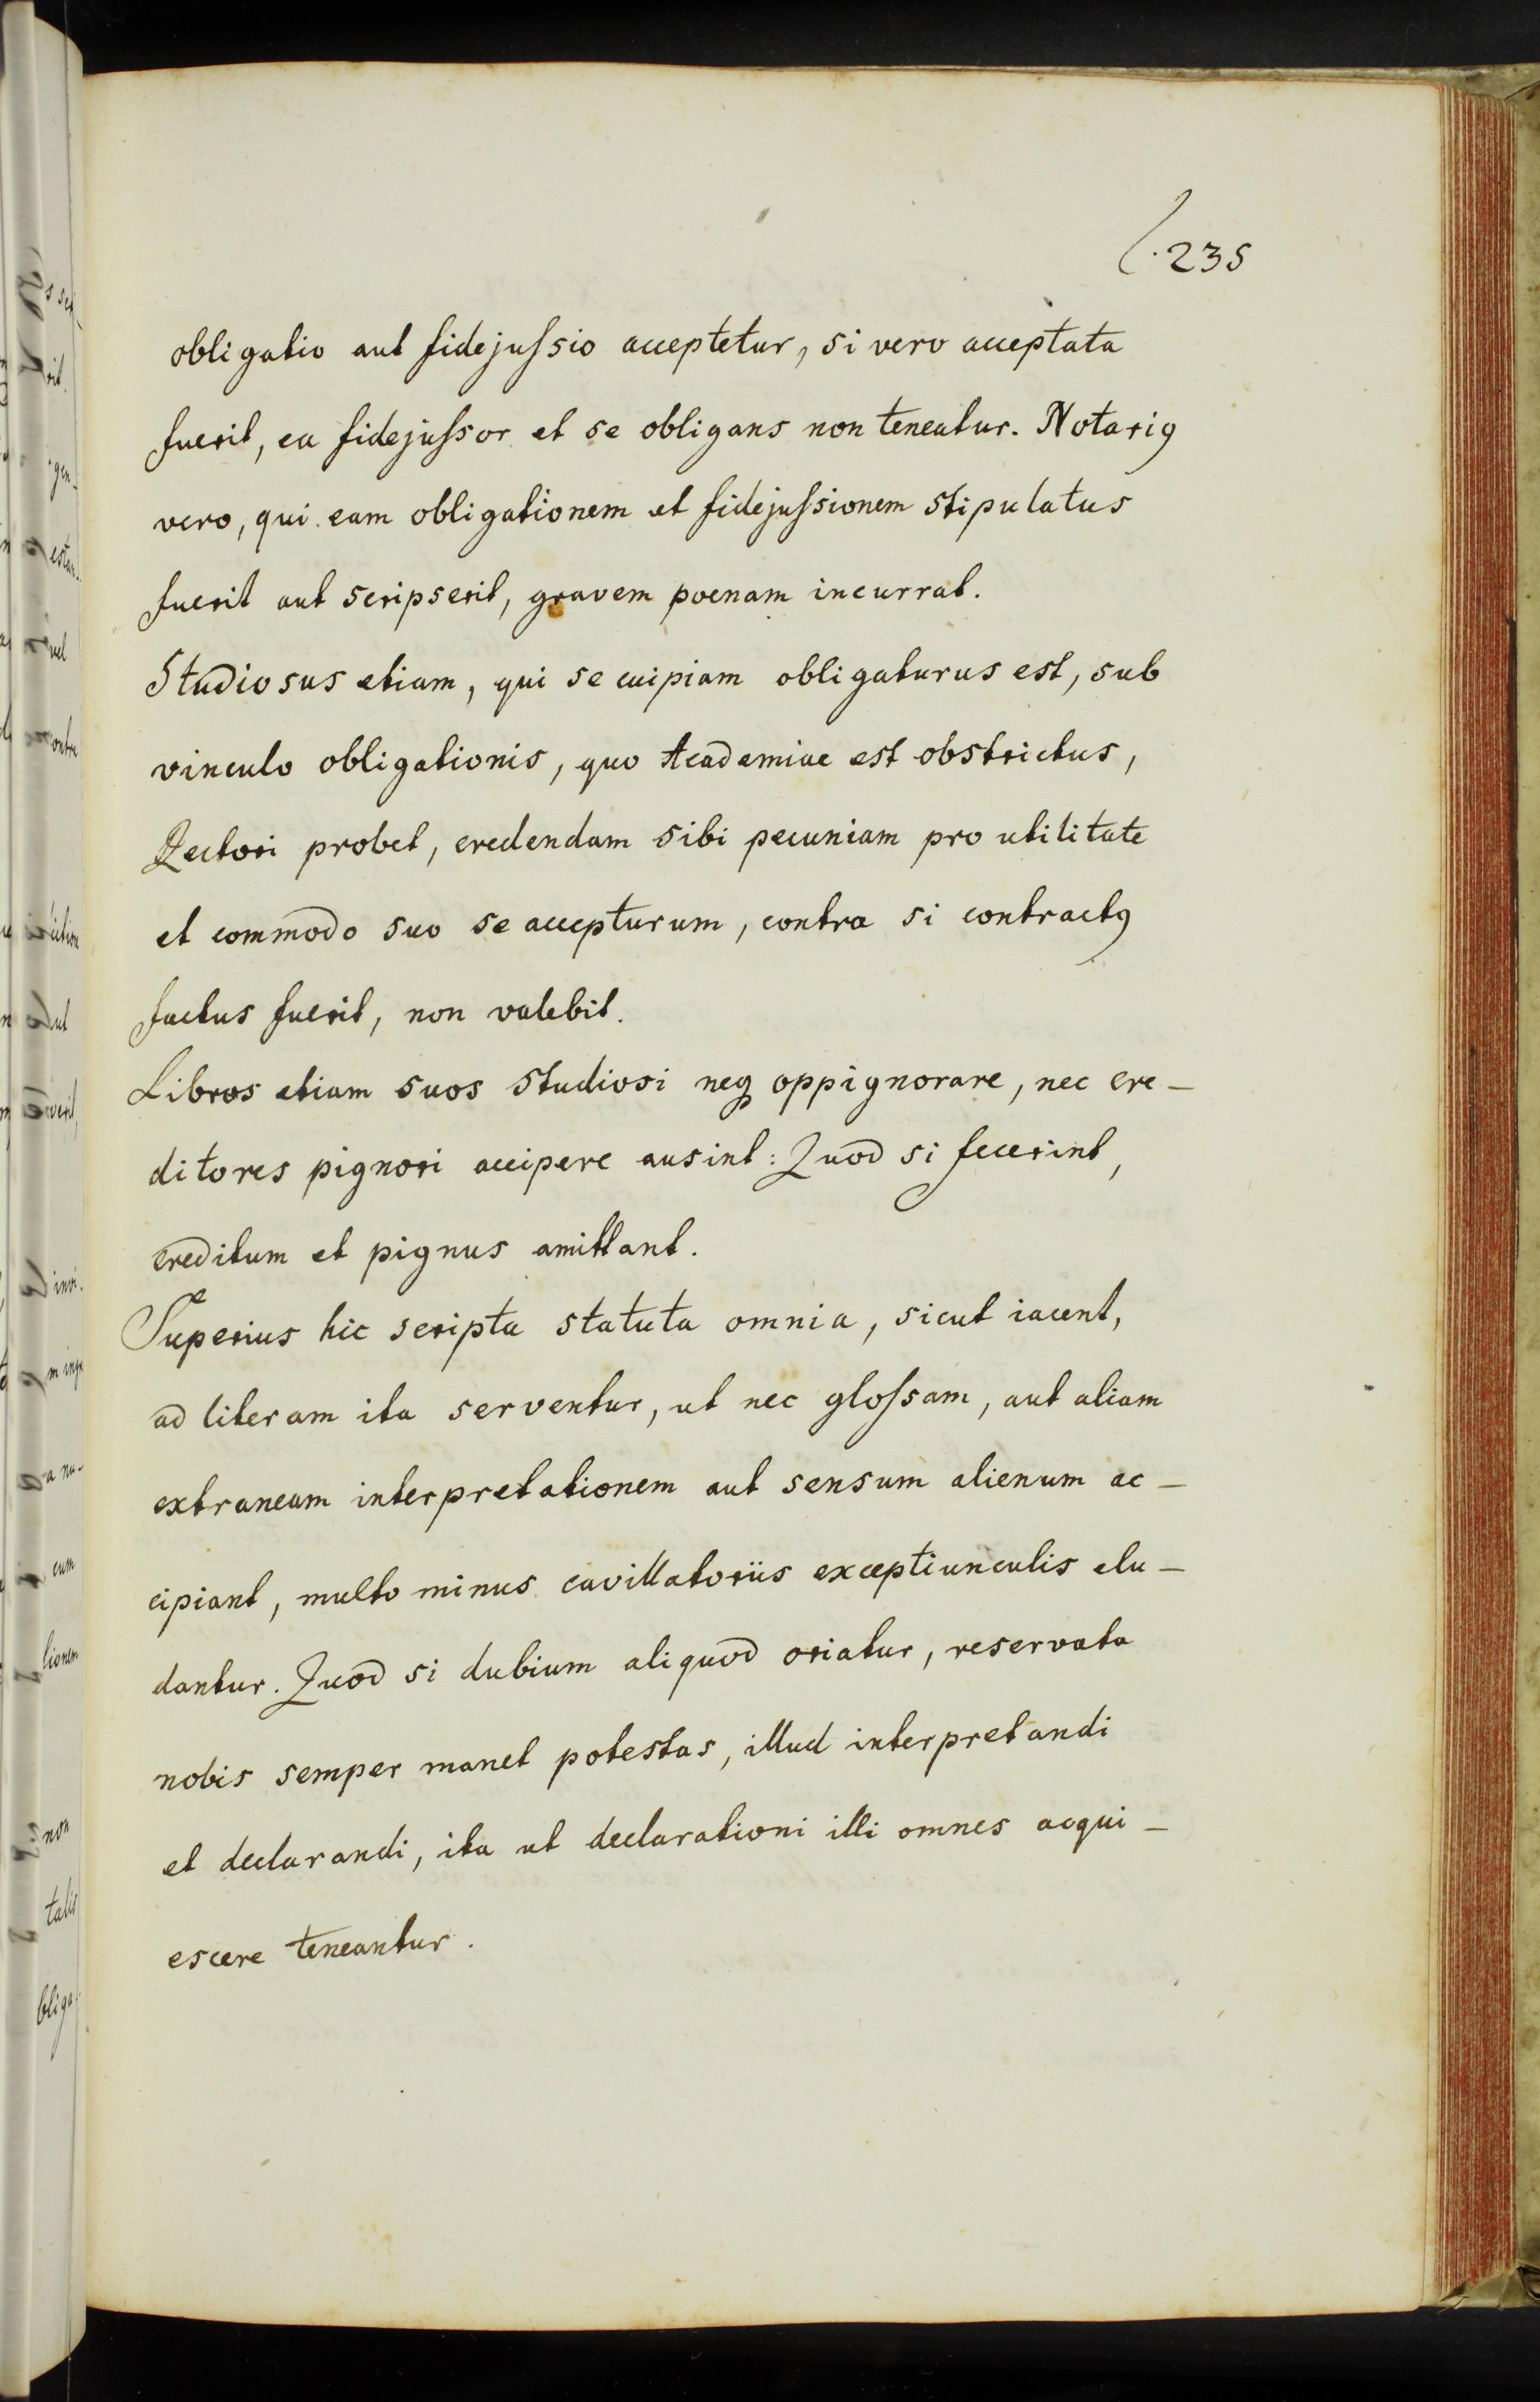 235
obligatio aut fidejuſsio acceptetur, si vero acceptata
fuerit, ea fidejuſsor et se obligans non teneatur. Notariꝰ
vero, qui eam obligationem et fidejuſsionem stipulatus
fuerit aut scripserit, gravem poenam incurrat.
Studiosus etiam, qui se cuipiam obligaturus est, sub
vinculo obligationis, quo Academiae est obstrictus,
Rectori probet, credendam sibi pecuniam pro utilitate
et commodo suo se accepturum, contra si contractꝰ
factus fuerit, non valebit.
Libros etiam suos studiosi neqꝫ oppignorare, nec cre-
ditores pignori accipere ausint: Quod si fecerint,
creditum et pignus amittant.
Superius hic scripta statuta omnia, sicut iacent,
ad literam ita serventur, ut nec gloſsam, aut aliam
extraneam interpretationem aut sensum alienum ac-
cipiant, multo minus cavillatoriis exceptiunculis elu-
dantur. Quod si dubium aliquod oriatur, reservata
nobis semper manet potestas, illud interpretandi
et declarandi, ita ut declarationi illi omnes acqui-
escere teneantur.